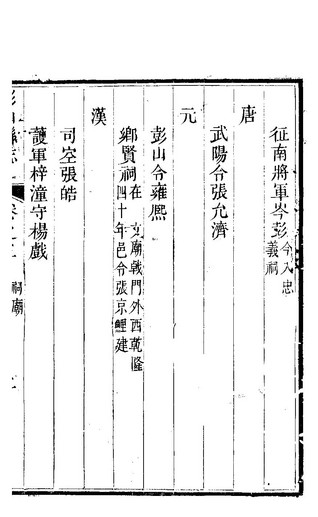 征南將軍岑彭今入忠義祠
唐
武陽令張允濟
元
彭山令雍熙
鄉賢祠在文廟戟門外西乾隆四十年邑令張京鯉建
漢
司空張皓
護軍梓潼守楊戲
祠廟